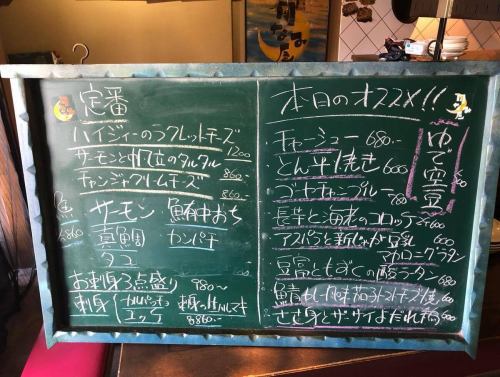 定番
ハイジィーのラクレットチーズ 1200
サーモンと帆立のタルタル 860
チャンジャクリームチーズ 860
魚 サーモン 鮪中おち
¥860 真鯛 カンパチ
タコ
お刺身3点盛り 980〜
刺身 カルパッチョ
ユッケ 860〜
本日のオススメ!!
チャーシュー 680-
とん平焼き 600
ゴーヤチャンプルー 780
長芋と海老のコロッケ 2ケ 600
アスパラと新じゃが豆乳 600
マカロニグラタン
豆腐ともずくの酸ラータン 680
ささ身とザーサイよだれ 600
ゆで空豆